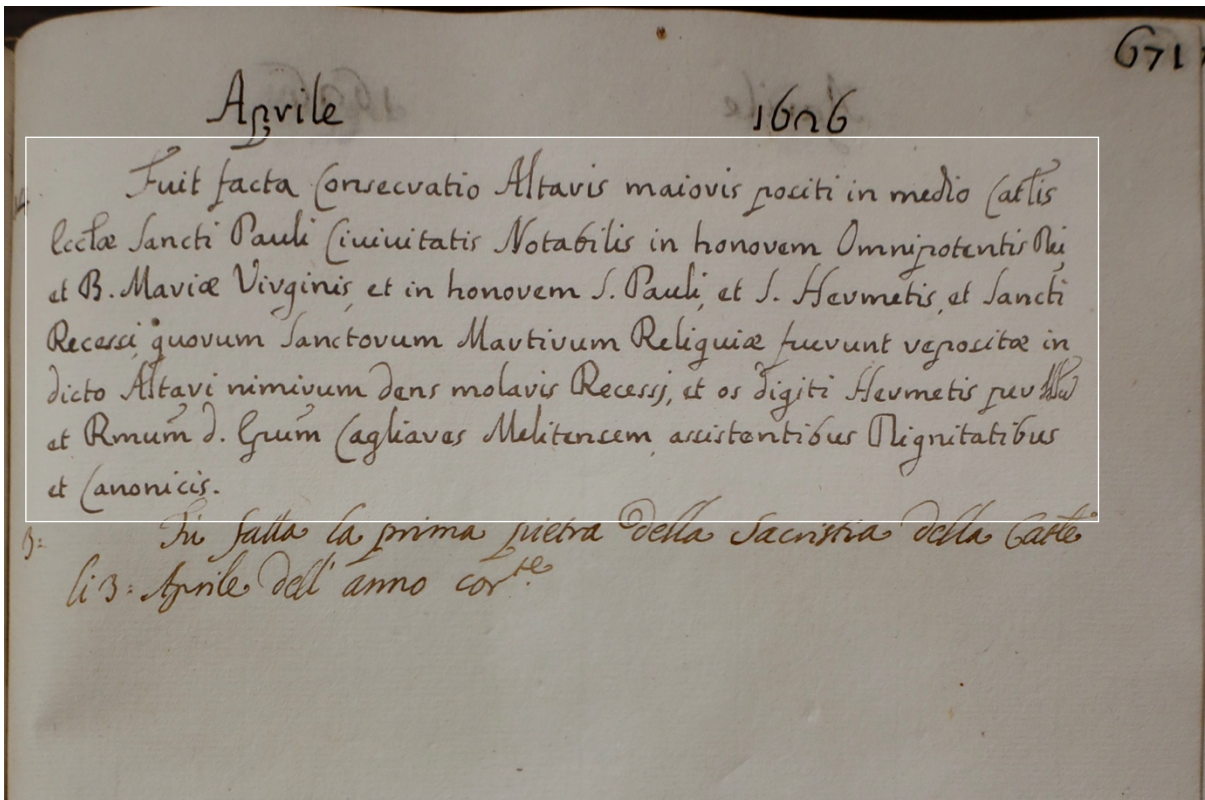 671
Aprile 1626
Fuit facta Consecratio Altaris maioris positi in medio Catlis
Ecclæ Sancti Pauli Ciuiuitatis Notabilis in honorem Omnipotentis Dei
et B. Mariæ Virginis, et in honorem S. Pauli, et S. Hermetis, et Sancti
Recessi, quorum Sanctorum Martirum Reliquiæ fuerunt repositæ in
dicto Altari nimirum dens molaris Recessj, et os digiti Hermetis per
et Rmum d. Grum Cagliares Melitensem, assistentibus Dignitatibus
et Canonicis.
3: Fù fatta la prima pietra della Sacristia della Catte
li 3: Aprile dell' anno corte.